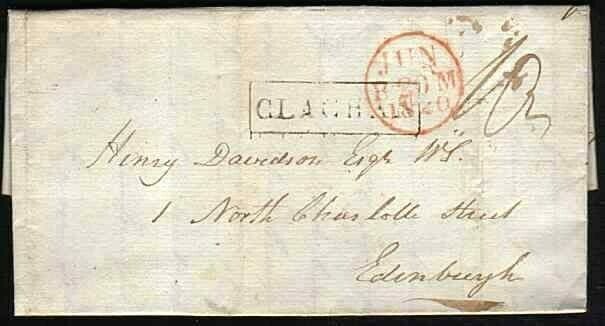 JUN
20 M
1820
CLACHAN
Henry Davidson Esqr WS.
1 North Charlotte Street
Edinburgh